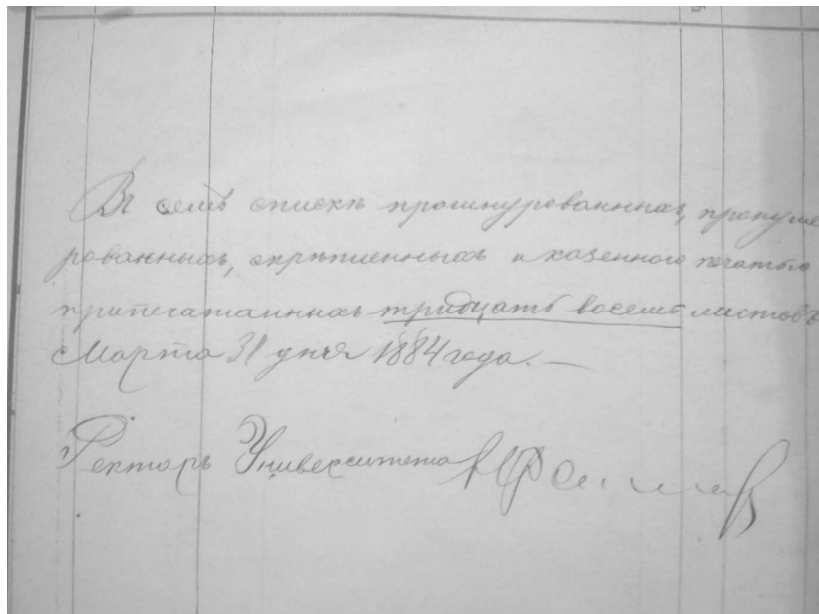 Въ семъ спискѣ прошнурованныхъ, прону ме
рованныхъ, скрѣпленныхъ и казенною печатью
припечатанныхъ тридцать восемь листовъ
Марта 31 дня 1884 года. —
Ректоръ Университета